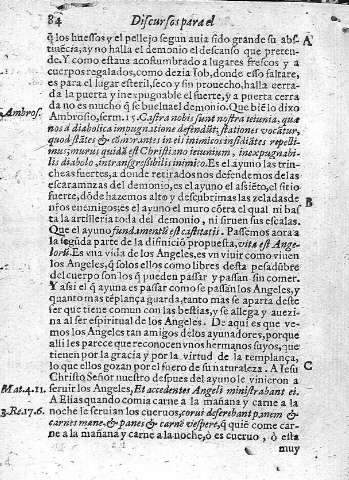 84 Discursos para el
q̃ los huessos y el pellejo segun auia sido grande su abs
tinẽcia, ay no halla el demonio el descanso que preten-
de. Y como estaua acostumbrado a lugares frescos y a
cuerpos regalados, como dezia Iob, donde esso faltare,
es para el lugar esteril, seco y sin prouecho, halla cerra-
da la puerta y inexpugnable el fuerte, y a puerta cerra
da no es mucho q̃ se buelua el demonio. Que biẽ lo dixo
Ambrosio, serm. 15. Castra nobis sunt nostra ieiunia, quæ
nos à diabolica impugnatione defendũt; stationes vocãtur,
quod stãtes & cõmorantes in eis inimicos insidiãtes repelli-
mus; murus quidã est Christiano ieiunium, inexpugnabi-
lis diabolo, intransgressibilis inimico. Es el ayuno las trin-
cheas fuertes, a donde retirados nos defendemos de las
escaramuzas del demonio, es el ayuno el assiẽto, el sitio
fuerte, dõde hazemos alto y descubrimas las zeladas de
nr̃os enemigos: es el ayuno el muro cõtra el qual ni bas
ta la artilleria toda del demonio, ni siruen sus escalas.
Que el ayuno fundamentũ est castitatis. Passemos aora a
la segũda parte de la difinició propuesta, vita est Ange-
lorũ. Es vna vida de los Angeles, es vn viuir como viuen
los Angeles, q̃ solos ellos como libres desta pesadũbre
del cuerpo son los q̃ pueden passar y passan sin comer.
Y assi el q̃ ayuna es passar como se passan los Angeles, y
quanto mas tẽplança guarda, tanto mas se aparta deste
ser que tiene comun con las bestias, y se allega y auezi-
na al ser espiritual de los Angeles. De aqui es que ve-
mos los Angeles tan amigos de los ayunadores, porque
alli les parece que reconocen vnos hermanos suyos, que
tienen por la gracia y por la virtud de la templança,
lo que ellos gozan por el fuero de su naturaleza. A Iesu
Christo Señor nuestro despues del ayuno le vinieron a
seruir los Angeles, Et accedentes Angeli ministrabant ei.
A Elias quando comia carne a la mañana y carne a la
noche le seruian los cueruos, corui deferebant panem &
carnes mane, & panes & carnẽ vespere, q̃ quiẽ come car-
ne a la mañana y carne a la noche, ò es cueruo, ò esta
muy
A
Ambros.
B
C
Mat. 4. 11.
3. Re. 17. 6.